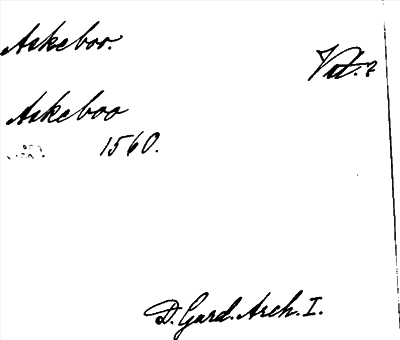 Askeboo.
Vät. 7
Askeboo
1560.
D. Gard. Arch. I.